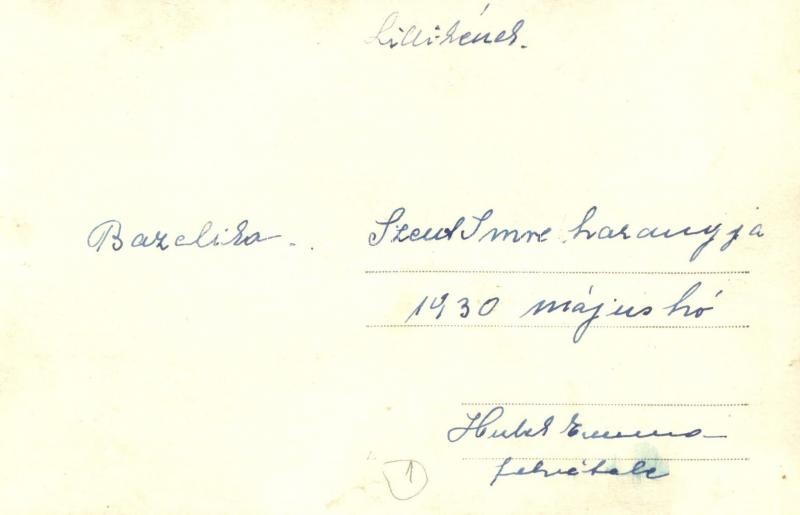 Lillikének.
Bazelika. Szent Imre harangja
1930 május hó
Emma
felvétele
1